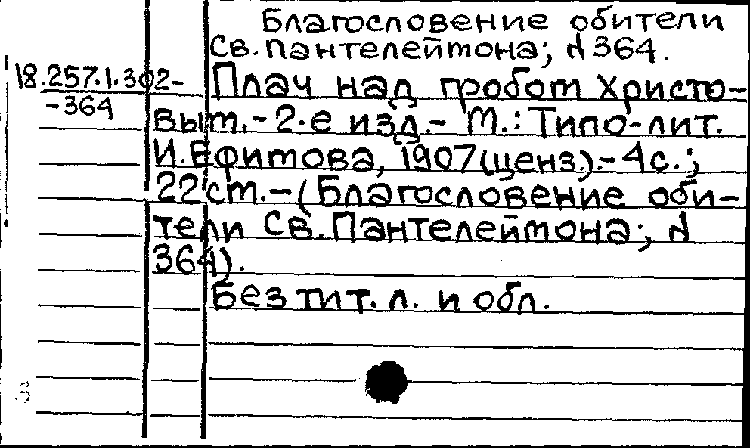 Благословение обители
Св. Пантелеймона; № 364.
18.257.1.302-
-364
Плач над гробом Христо-
вым.- 2-е изд.- М.: Типо-лит.
И. Ефимова, 1907 (ценз.).- 4 с.;
22 ст.- (Благословение оби-
тели Св. Пантелеймона; №
364).
Без тит. л. и обл.